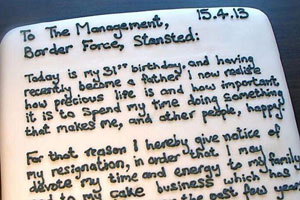 15.4.13
To The Management,
Border Force, Stansted:
Today is my 31st birthday, and having
recently become a father I now realise
how precious life is and how important
it is to spend my time doing something
that makes me, and other people, happy
For that reason I hereby give notice of
my resignation, in order that I may
devote my time and energy to my family
and to my cake business which has
the past few years